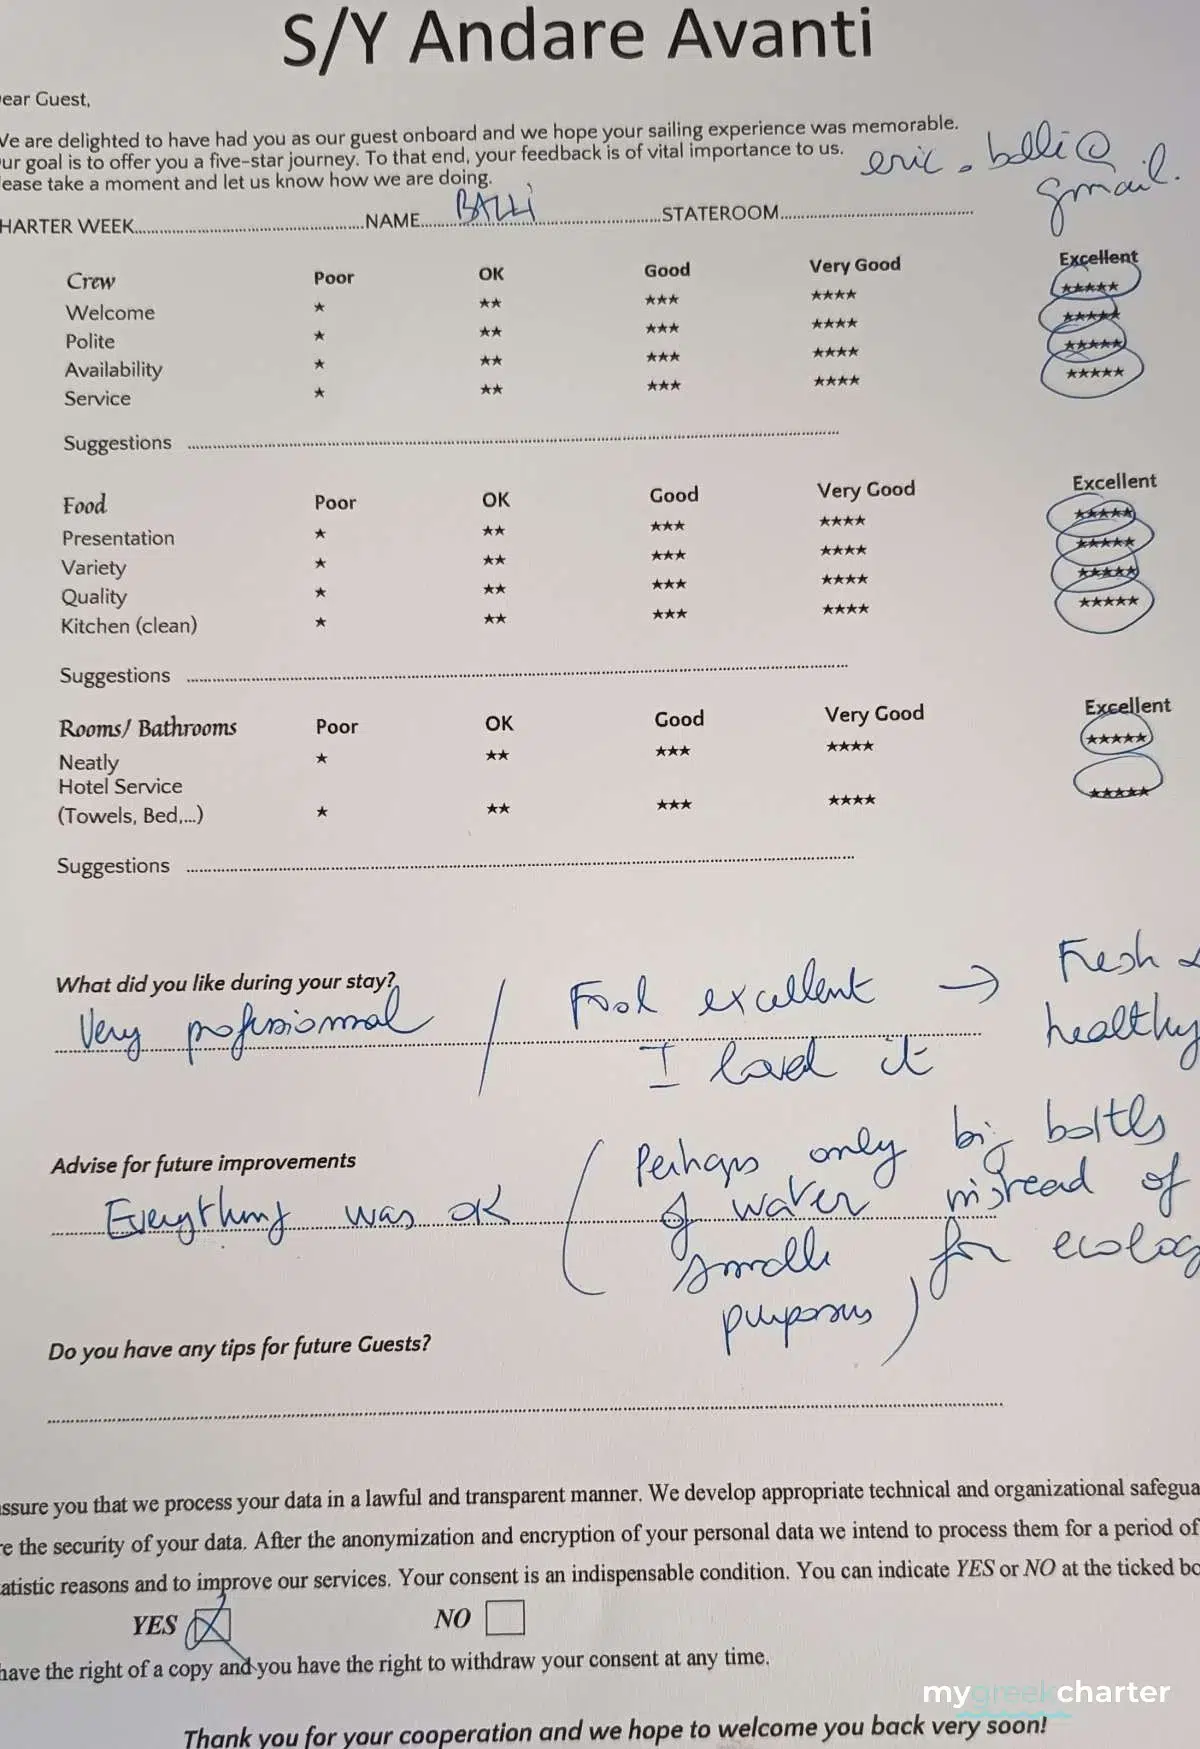 S/Y Andare Avanti
ear Guest,
Ve are delighted to have had you as our guest onboard and we hope your sailing experience was memorable.
ur goal is to offer you a five-star journey. To that end, your feedback is of vital importance to us.
ease take a moment and let us know how we are doing.
eric. balli@
gmail.
HARTER WEEK.......... NAME.......... BALLI .......... STATEROOM..........
Crew Poor OK Good Very Good Excellent
Welcome ★ ★★ ★★★ ★★★★ ★★★★★
Polite ★ ★★ ★★★ ★★★★ ★★★★★
Availability ★ ★★ ★★★ ★★★★ ★★★★★
Service ★ ★★ ★★★ ★★★★ ★★★★★
Suggestions ..........
Food Poor OK Good Very Good Excellent
Presentation ★ ★★ ★★★ ★★★★ ★★★★★
Variety ★ ★★ ★★★ ★★★★ ★★★★★
Quality ★ ★★ ★★★ ★★★★ ★★★★★
Kitchen (clean) ★ ★★ ★★★ ★★★★ ★★★★★
Suggestions ..........
Rooms/ Bathrooms Poor OK Good Very Good Excellent
Neatly ★ ★★ ★★★ ★★★★ ★★★★★
Hotel Service
(Towels, Bed,...) ★ ★★ ★★★ ★★★★ ★★★★★
Suggestions ..........
What did you like during your stay?
Very professionnal / Food excellent → Fresh &
I loved it healthy
Advise for future improvements
Everything was OK (Perhaps only big bottles
of water instead of
smalls for ecolog
purposes)
Do you have any tips for future Guests?
assure you that we process your data in a lawful and transparent manner. We develop appropriate technical and organizational safegua
re the security of your data. After the anonymization and encryption of your personal data we intend to process them for a period of
atistic reasons and to improve our services. Your consent is an indispensable condition. You can indicate YES or NO at the ticked bo
YES NO
have the right of a copy and you have the right to withdraw your consent at any time.
mygreekcharter
Thank you for your cooperation and we hope to welcome you back very soon!